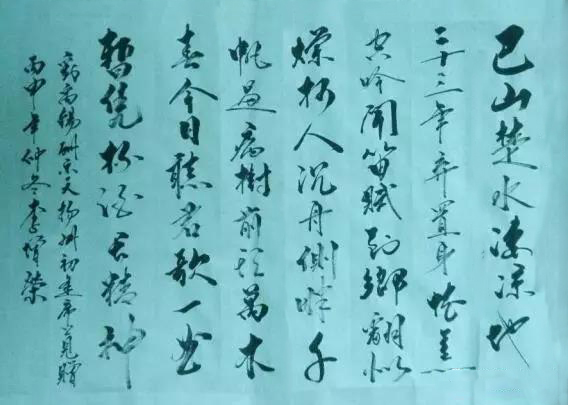 巴山楚水凄凉地
二十三年弃置身怀旧
空吟聞笛賦到鄉翻似
爛柯人沉舟側畔千
帆過病樹前頭萬木
春今日聽君歌一曲
暫凭杯酒长精神
劉禹锡酬乐天扬州初逢席上見贈
丙申年仲冬李榮